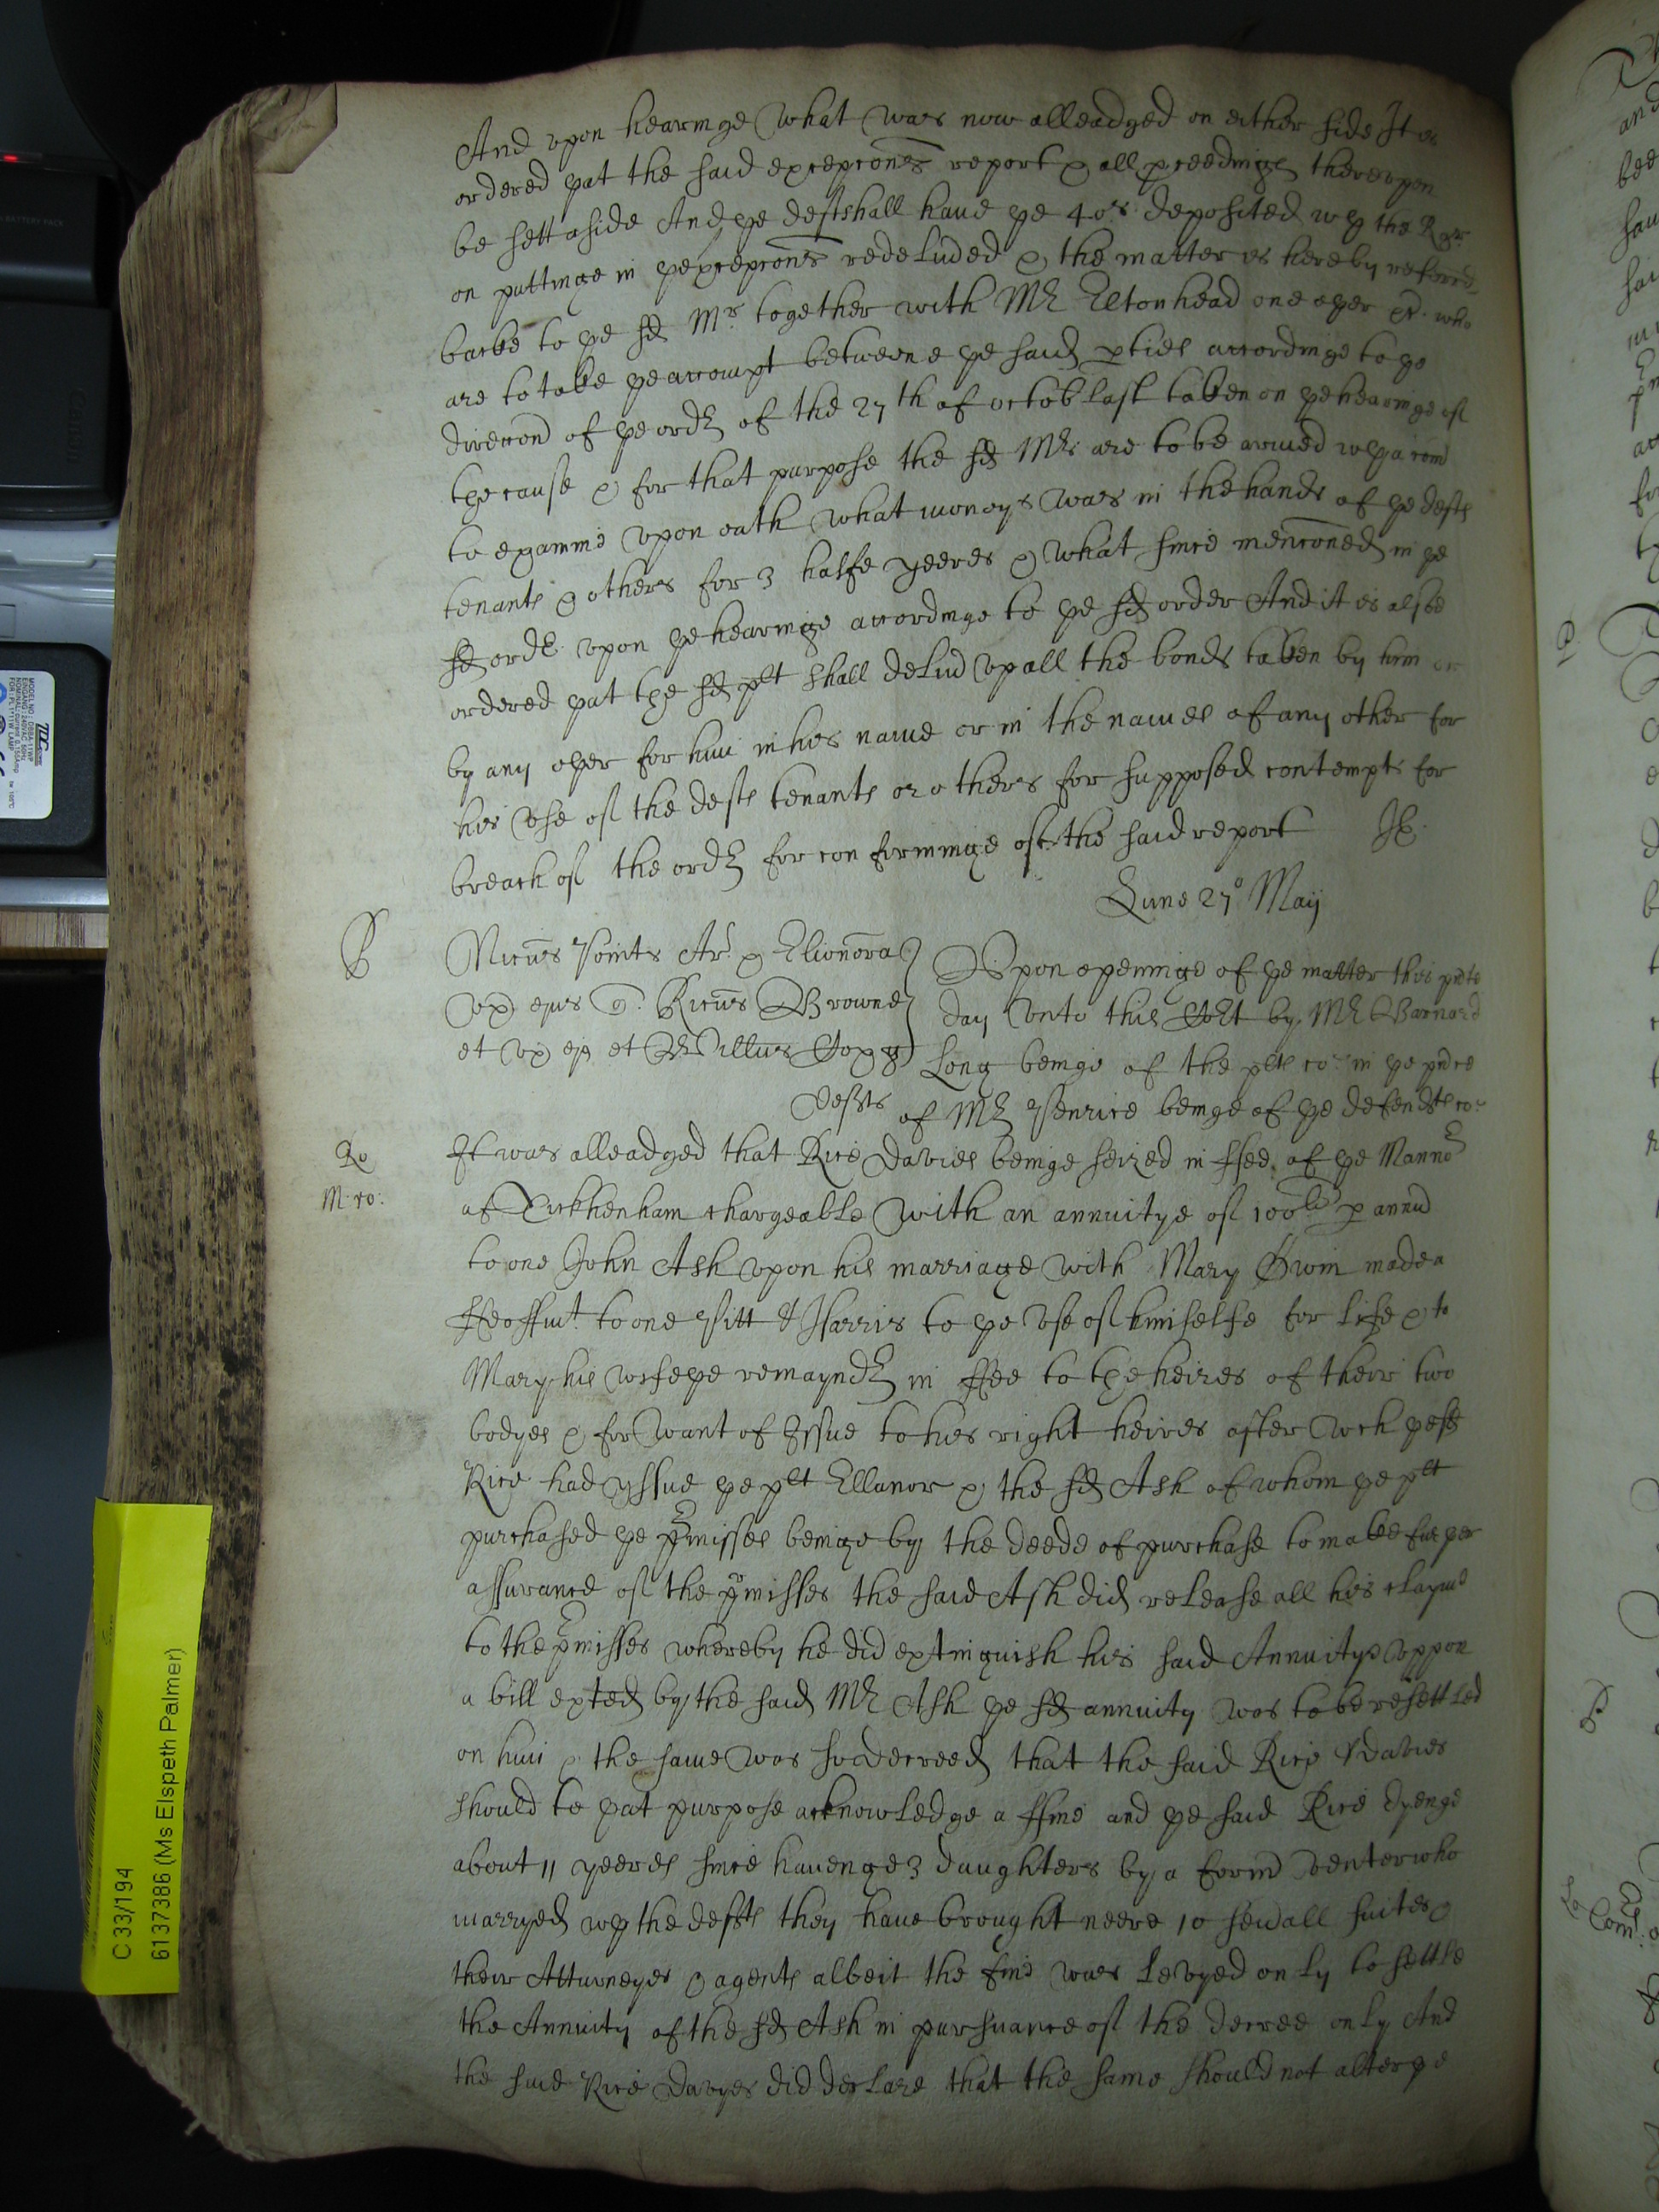 And vpon hearinge what was now alleadged on either side It is
ordered yat the said excepcons report & all pceedings therevpon
be sett aside And ye defts shall haue ye 40s deposited wth the Rgr
on puttinge in ye excepcons redeliued & the matter is hereby referred
backe to ye sd Mr together with Mr Eltonhead one oyer Mr who
are to take ye accompt betweene ye said pties accordinge to ye
direccon of ye ordr of the 27th of octob last taken on ye hearinge of
the cause & for that purpose the sd Mrs are to be armed wth a com
to examine vpon oath what moneys was in the hands of ye defts
tenants & others for 3 halfe yeeres & what since mencioned in ye
sd ordr vpon ye hearinge accordinge to ye sd order And it is alsoe
ordered yat the sd plt shall deliu vp all the bonds taken by him or
by any oyer for him in his name or in the names of any other for
his vse of the defts tenants or others for supposed contempts for
breach of the ordr for confirminge of the said report
Lune 27o Maij
Nicus Points Ar & Elionora
vx eius Ricus Browne
et vx ejs et Willus
Defts
Vpon openinge of ye matter this pnte
day vnto this Cort by Mr Barnard
Long beinge of the plts co: in ye pnce
of Mr Penrice beinge of ye defendts co:
Ro
M: ro:
It was alleadged that Rice Davies beinge seized in ffee of ye Mannor
of Tickhenham chargeable with an annuitye of 100li p annu
to one John Ash vpon his marriage with Mary Gwin made a
ffeoffmt to one Pitt & Harris to ye vse of himselfe for life & to
Mary his wife ye remayndr in ffee to the heires of their two
bodyes & for want of Issue to his right heires after wch ye sd
Rice had yssue ye plt Ellanor & the sd Ash of whom ye plt
purchased ye pmisses beinge by the deede of purchase to make furyer
assurance of the pmisses the said Ash did release all his clayme
to the pmisses whereby he did extinguish his said Annuitye vppon
a bill exted by the said Mr Ash ye sd annuity was to be resettled
on him & the same was soe decreed that the said Rice Davies
should to yat purpose acknowledge a ffine and ye said Rice dyenge
about 11 yeeres since hauenge 3 daughters by a formr venter who
marryed wth the defts they haue brought neere 10 seuall suites &
their Atturneyes & agents albeit the fine was levyed only to settle
the Annuity of the sd Ash in pursuance of the decree only And
the said Rice Davyes did declare that the same should not alter ye
C 33/194
6137386 (Ms Elspeth Palmer)